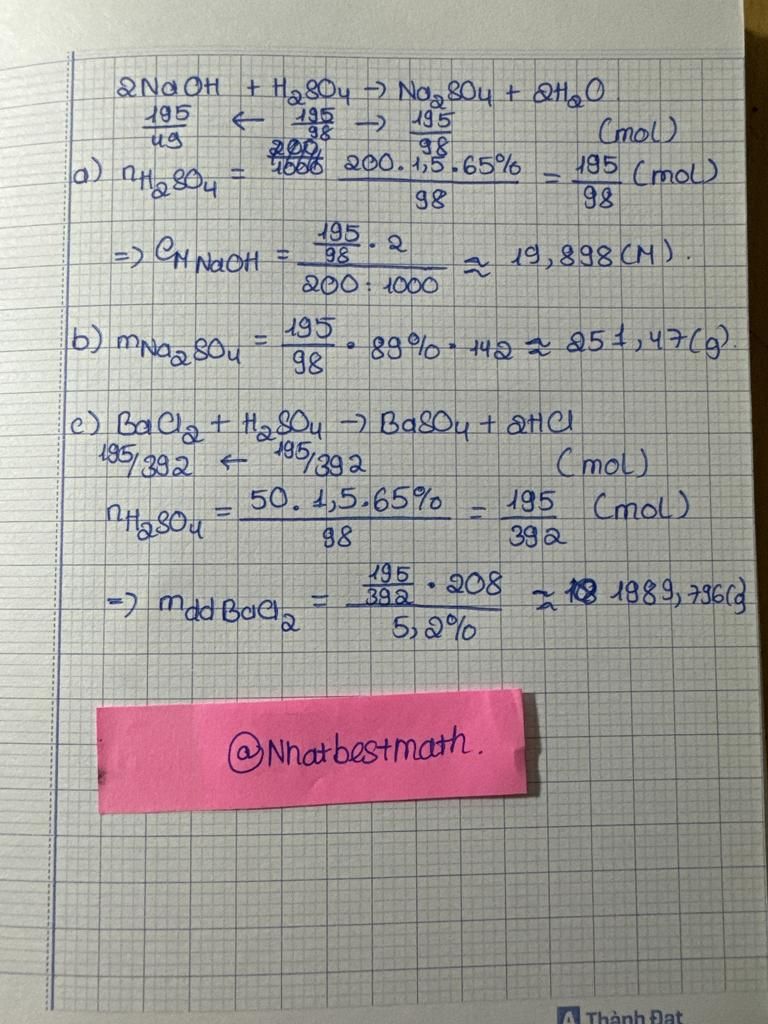 2NaOH + H₂SO₄ → Na₂SO₄ + 2H₂O
195/49 ← 195/98 → 195/98 (mol)
a) nH₂SO₄ = 200 . 1,5 . 65% / 98 = 195/98 (mol)
=> CM NaOH = (195/98 . 2) / (200 : 1000) ≈ 19,898 (M).
b) mNa₂SO₄ = 195/98 . 89% . 142 ≈ 251,47 (g).
c) BaCl₂ + H₂SO₄ → BaSO₄ + 2HCl
195/392 ← 195/392 (mol)
nH₂SO₄ = 50 . 1,5 . 65% / 98 = 195/392 (mol)
=> mdd BaCl₂ = (195/392 . 208) / 5,2% ≈ 1989,796 (g)
@Nhatbestmath.
Thành Đạt